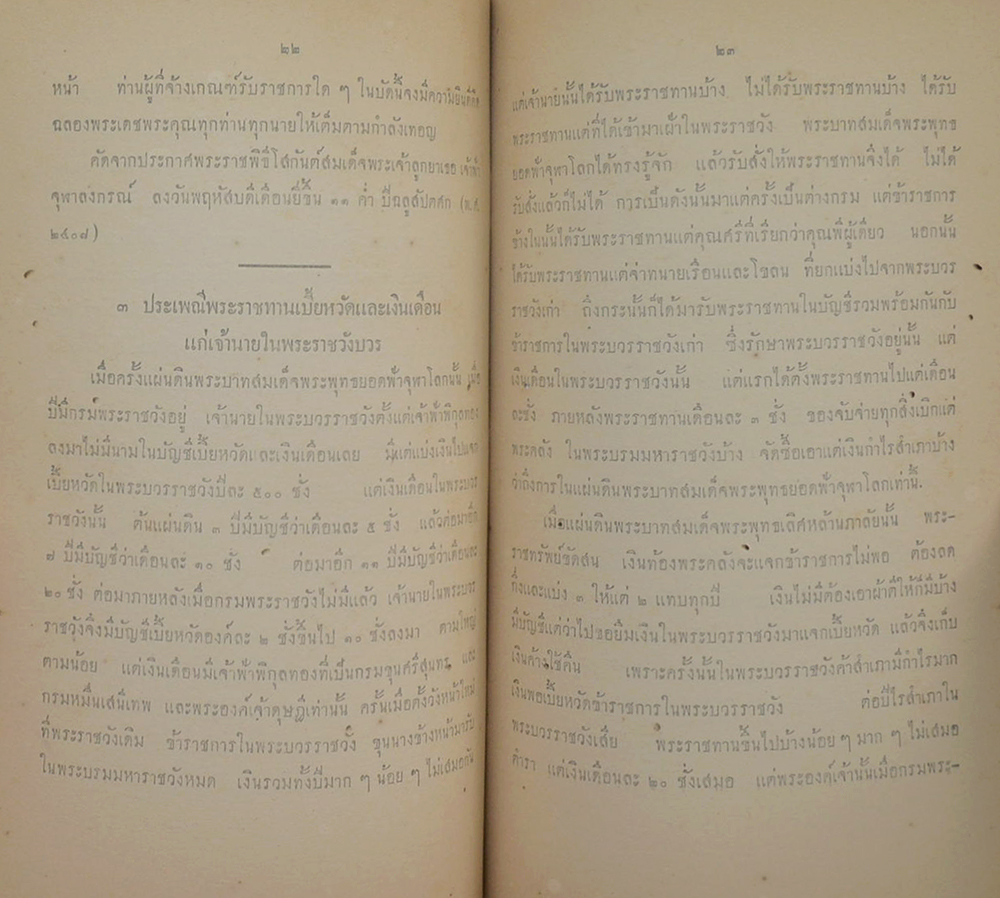 ๒๒
หน้า ท่านผู้ที่จ้างเกณฑ์รับราชการใด ๆ ในบัดนี้จงมีความยินดีคิด
ฉลองพระเดชพระคุณทุกท่านทุกนายให้เต็มตามกำลังเทอญ
คัดจากประกาศพระราชพิธีโสกันต์สมเด็จพระเจ้าลูกยาเธอ เจ้าฟ้า
จุฬาลงกรณ์ ลงวันพฤหัสบดีเดือนยี่ขึ้น ๑๑ ค่ำ ปีฉลูสัปตศก (พ.ศ.
๒๔๐๘)
๓ ประเพณีพระราชทานเบี้ยหวัดและเงินเดือน
แก่เจ้านายในพระราชวังบวร
เมื่อครั้งแผ่นดินพระบาทสมเด็จพระพุทธยอดฟ้าจุฬาโลกนั้น เมื่อ
ปีมีกรมพระราชวังอยู่ เจ้านายในพระบวรราชวังตั้งแต่เจ้าฟ้าพิกุลทอง
ลงมาไม่มีนามในบัญชีเบี้ยหวัดและเงินเดือนเลย มีแต่แบ่งเงินไปแจก
เบี้ยหวัดในพระบวรราชวังปีละ ๕๐๐ ชั่ง แต่เงินเดือนในพระบวร
ราชวังนั้น ต้นแผ่นดิน ๓ ปีมีบัญชีว่าเดือนละ ๕ ชั่ง แล้วต่อมาอีก
๗ ปีมีบัญชีว่าเดือนละ ๑๐ ชั่ง ต่อมาอีก ๑๑ ปีมีบัญชีว่าเดือนละ
๒๐ ชั่ง ต่อมาภายหลังเมื่อกรมพระราชวังไม่มีแล้ว เจ้านายในพระบวร
ราชวังจึงมีบัญชีเบี้ยหวัดองค์ละ ๒ ชั่งขึ้นไป ๓๐ ชั่งลงมา ตามใหญ่
ตามน้อย แต่เงินเดือนมีเจ้าฟ้าพิกุลทองที่เป็นกรมขุนศรีสุนทร และ
กรมหมื่นเสนีเทพ และพระองค์เจ้าดุษฎีเท่านั้น ครั้นเมื่อตั้งวังหน้าใหม่
ที่พระราชวังเดิม ข้าราชการในพระบวรราชวัง ขุนนางข้างหน้ามารับ
ในพระบรมมหาราชวังหมด เงินรวมทั้งปีมาก ๆ น้อย ๆ ไม่เสมอกัน
๒๓
แต่เจ้านายนั้นได้รับพระราชทานบ้าง ไม่ได้รับพระราชทานบ้าง ได้รับ
พระราชทานแต่ที่ได้เข้ามาเฝ้าในพระราชวัง พระบาทสมเด็จพระพุทธ
ยอดฟ้าจุฬาโลกได้ทรงรู้จัก แล้วรับสั่งให้พระราชทานจึงได้ ไม่ได้
รับสั่งแล้วก็ไม่ได้ การเป็นดังนั้นมาแต่ครั้งเป็นต่างกรม แต่ข้าราชการ
ข้างในนั้นได้รับพระราชทานแต่คุณศรีที่เรียกว่าคุณพี่ผู้เดียว นอกนั้น
ได้รับพระราชทานแต่จ่าทนายเรือนและโขลน ที่ยกแบ่งไปจากพระบวร
ราชวังเก่า ถึงกระนั้นก็ได้มารับพระราชทานในบัญชีรวมพร้อมกันกับ
ข้าราชการในพระบวรราชวังเก่า ซึ่งรักษาพระบวรราชวังอยู่นั้น แต่
เงินเดือนในพระบวรราชวังนั้น แต่แรกได้ตั้งพระราชทานไปแต่เดือน
ละชั่ง ภายหลังพระราชทานเดือนละ ๓ ชั่ง ของจับจ่ายทุกสิ่งเบิกแต่
พระคลัง ในพระบรมมหาราชวังบ้าง จัดซื้อเอาแต่เงินกำไรสำเภาบ้าง
ว่าถึงการในแผ่นดินพระบาทสมเด็จพระพุทธยอดฟ้าจุฬาโลกเท่านี้.
เมื่อแผ่นดินพระบาทสมเด็จพระพุทธเลิศหล้านภาลัยนั้น พระ-
ราชทรัพย์ขัดสน เงินท้องพระคลังจะแจกข้าราชการไม่พอ ต้องลด
กึ่งและแบ่ง ๓ ให้แต่ ๒ แทบทุกปี เงินไม่มีต้องเอาผ้าตีให้ก็มีบ้าง
มีบัญชีแต่ว่าไปขอยืมเงินในพระบวรราชวังมาแจกเบี้ยหวัด แล้วจึงเก็บ
เงินค้างใช้คืน เพราะครั้งนั้นในพระบวรราชวังค้าสำเภามีกำไรมาก
เงินพอเบี้ยหวัดข้าราชการในพระบวรราชวัง ต่อปีไรสำเภาใน
พระบวรราชวังเสีย พระราชทานขึ้นไปบ้างน้อย ๆ มาก ๆ ไม่เสมอ
ตำรา แต่เงินเดือนละ ๒๐ ชั่งเสมอ แต่พระองค์เจ้านั้นเมื่อกรมพระ-